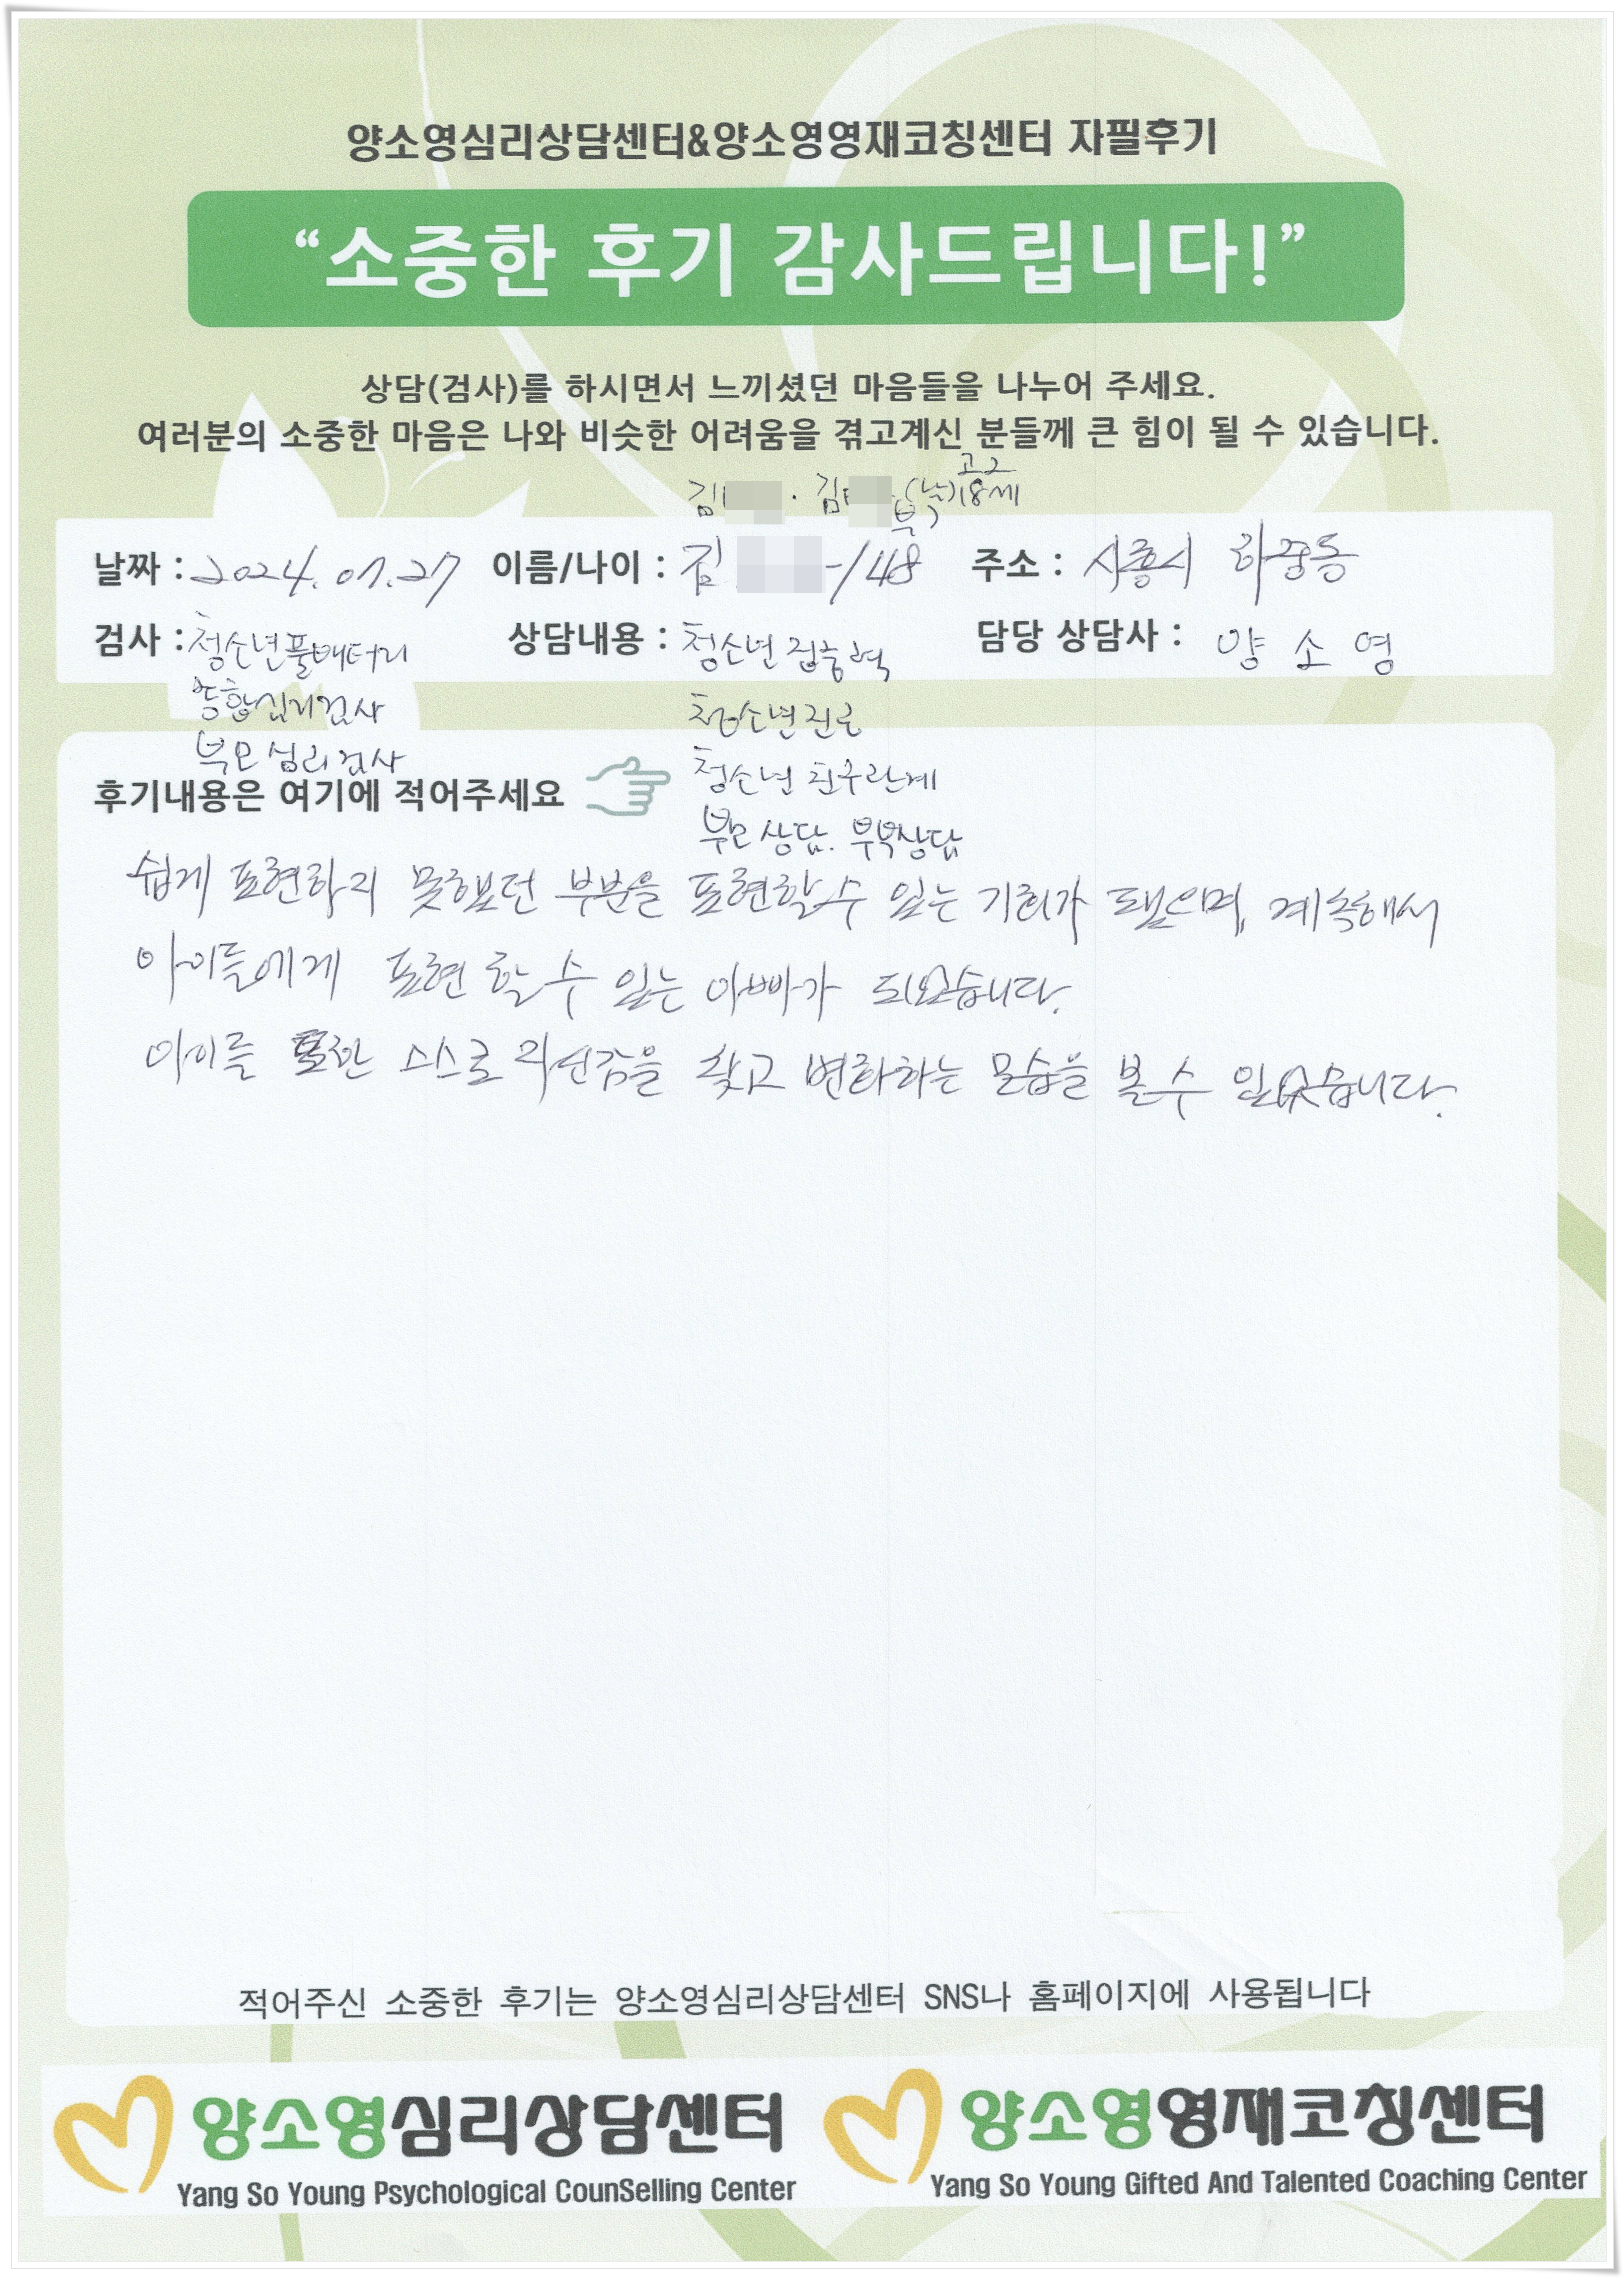 양소영심리상담센터&양소영영재코칭센터 자필후기
“소중한 후기 감사드립니다!”
상담(검사)를 하시면서 느끼셨던 마음들을 나누어 주세요.
여러분의 소중한 마음은 나와 비슷한 어려움을 겪고계신 분들께 큰 힘이 될 수 있습니다.
고2
김 · 김 18세
날짜 : 2024. 07. 27 이름/나이 : 김 /48 주소 : 시흥시 하중동
검사 : 청소년풀배터리 상담내용 : 청소년 집중력 담당 상담사 : 양 소 영
종합심리검사 청소년진로
부모 심리검사 청소년 친구관계
후기내용은 여기에 적어주세요
부모상담. 부부상담
쉽게 표현하지 못했던 부분을 표현할수 있는 기회가 됐으며, 계속해서
아이들에게 표현 할 수 있는 아빠가 되었습니다.
아이를 또한 스스로 자신감을 찾고 변화하는 모습을 볼 수 있었습니다.
적어주신 소중한 후기는 양소영심리상담센터 SNS나 홈페이지에 사용됩니다
양소영심리상담센터 양소영영재코칭센터
Yang So Young Psychological CounSelling Center Yang So Young Gifted And Talented Coaching Center